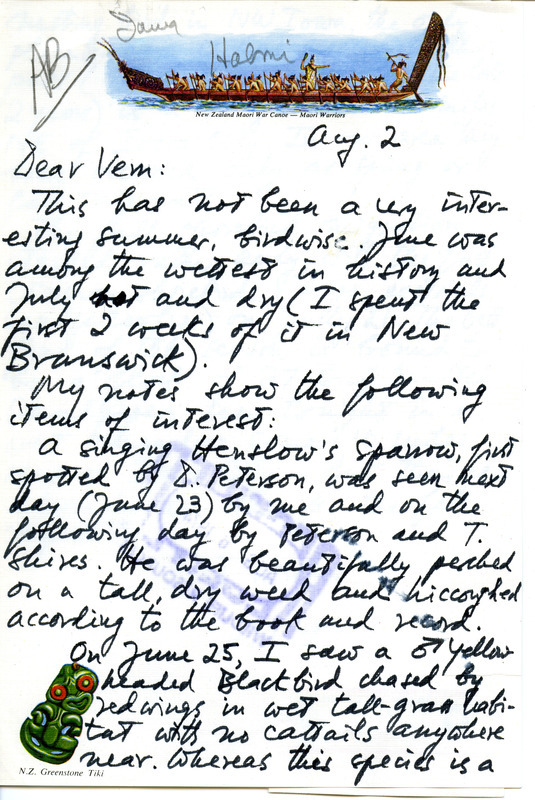 AB
Halmi
New Zealand Maori War Canoe — Maori Warriors
Aug. 2
Dear Vern:
This has not been a very inter-
esting summer, birdwise. June was
among the wettest in history and
July hot and dry (I spent the
first 2 weeks of it in New
Brunswick).
My notes show the following
items of interest:
A singing Henslow's sparrow, first
spotted by D. Peterson, was seen next
day (June 23) by me and on the
following day by Peterson and T.
Shires. He was beautifully perched
on a tall, dry weed and hiccoughed
according to the book and record.
On June 25, I saw a ♂ Yellow
headed Blackbird chased by
redwings in wet tall-grass habi-
tat with no cattails anywhere
near. Whereas this species is a
N.Z. Greenstone Tiki